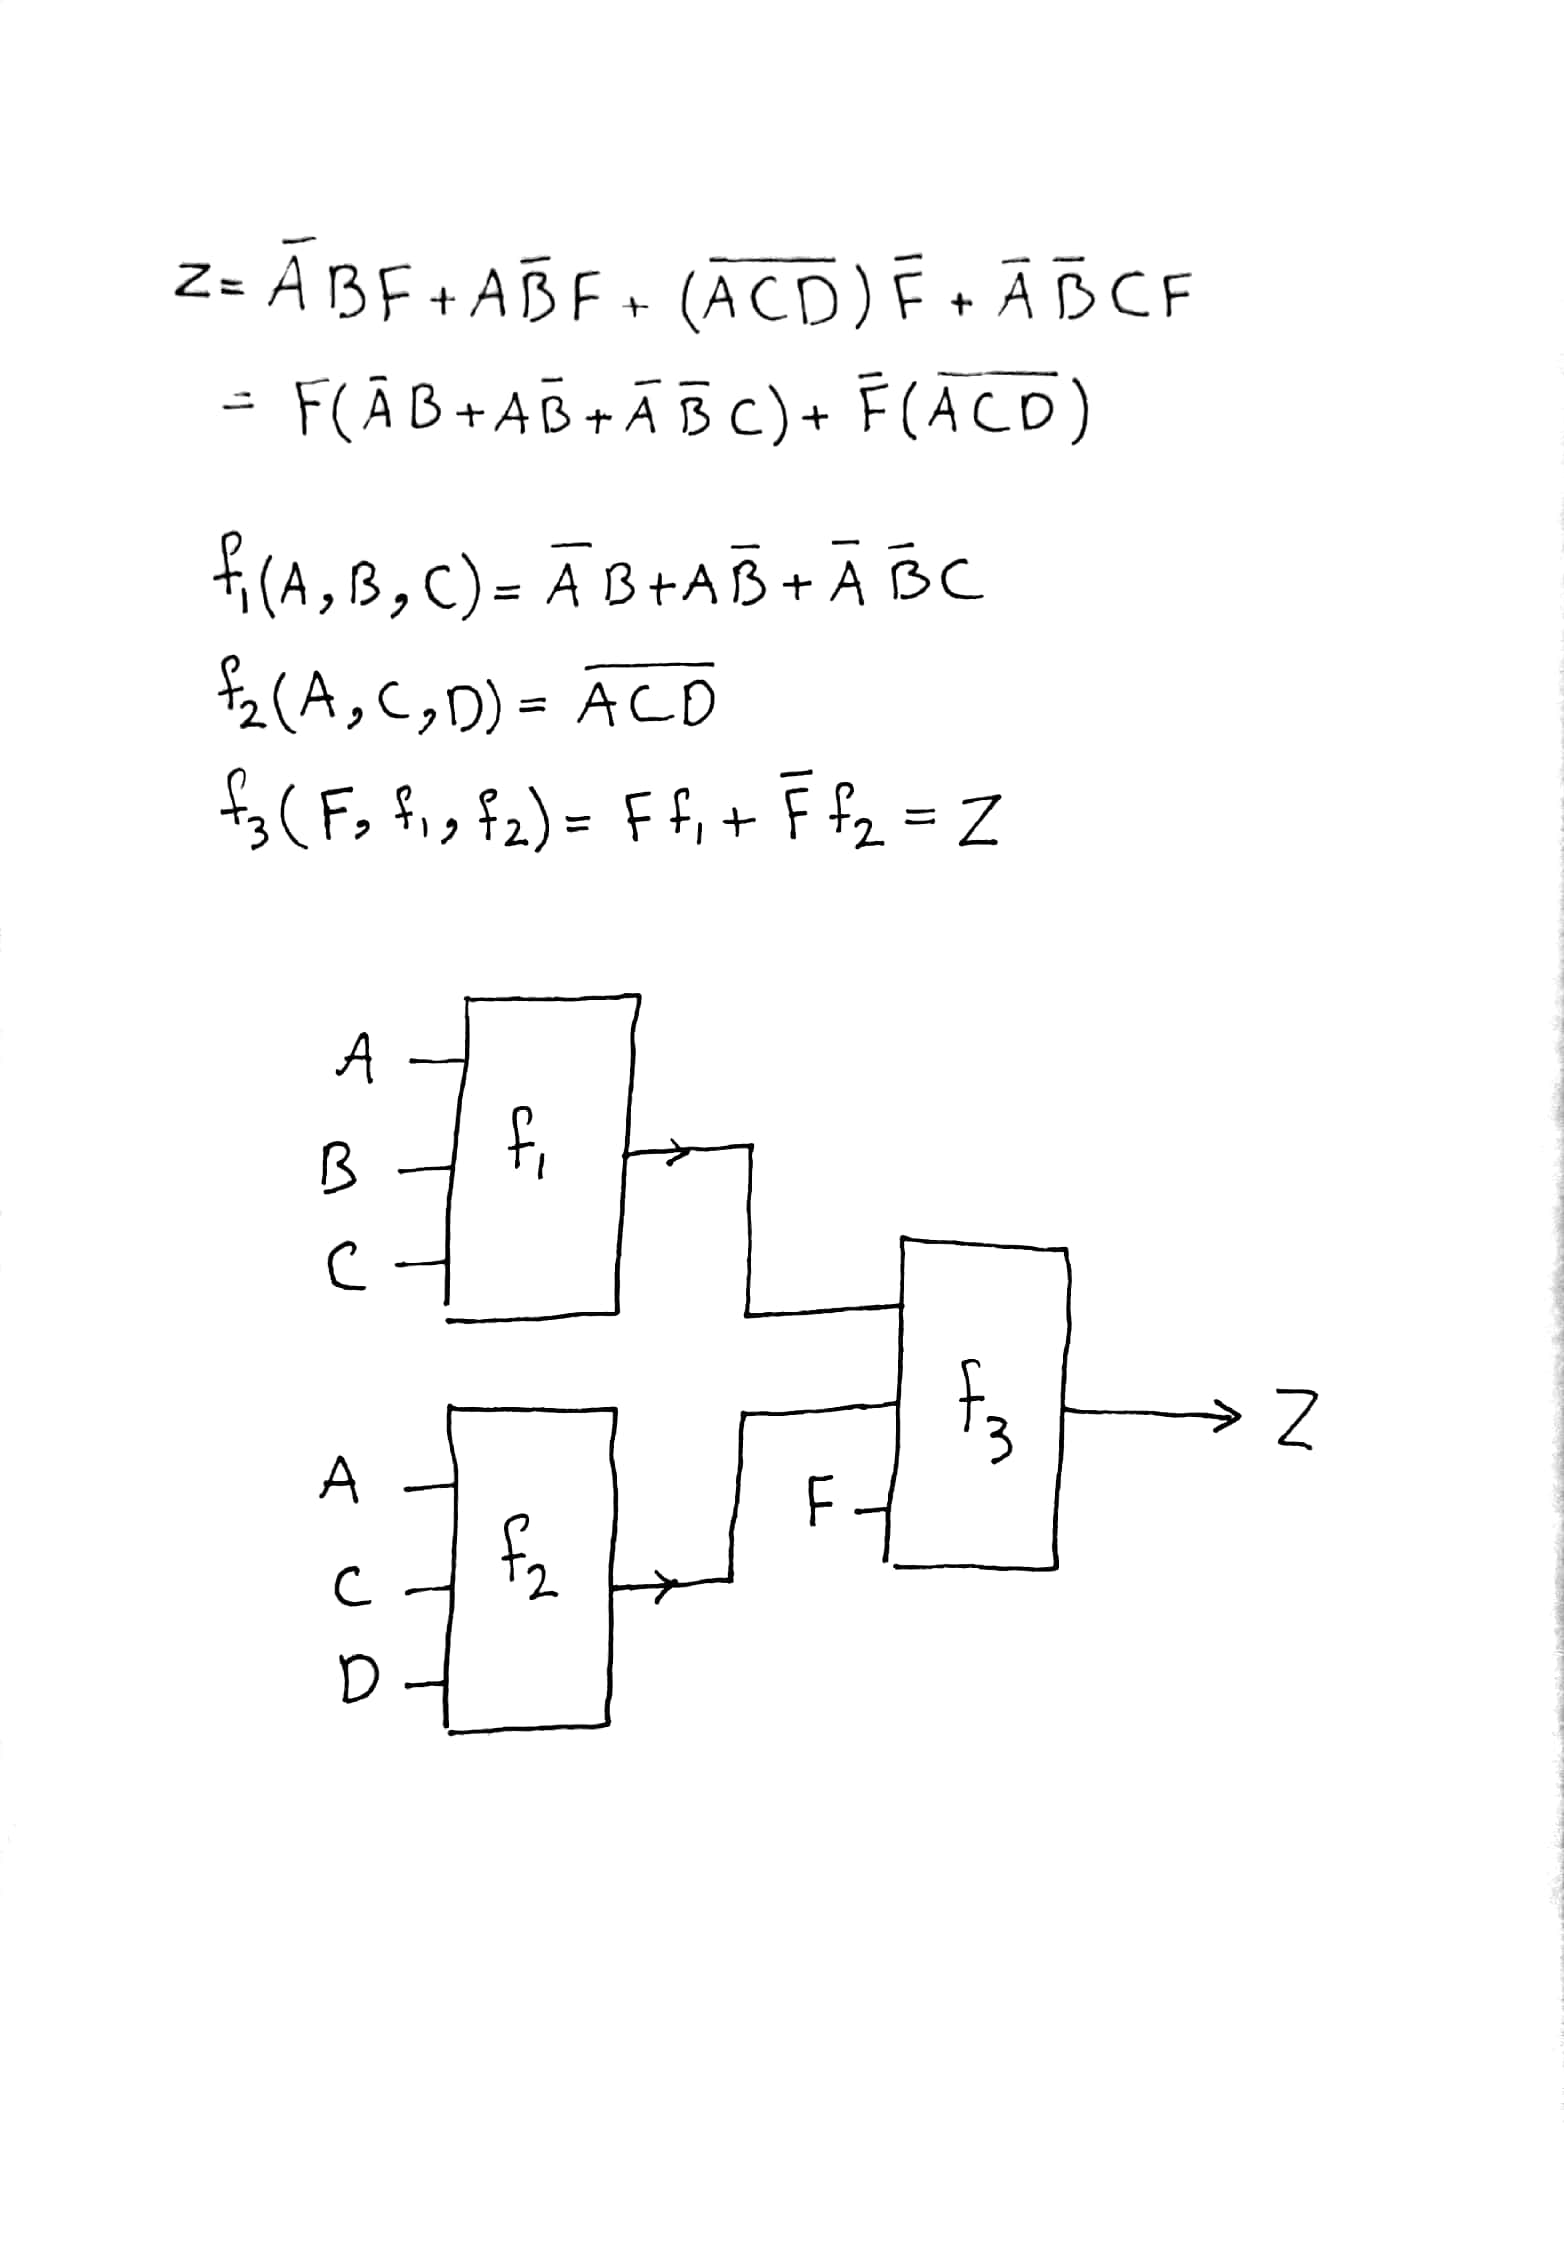 Z= A̅BF + AB̅F + (A̅C̅D̅)F̅ + A̅B̅CF
= F(A̅B + AB̅ + A̅B̅C) + F̅(A̅C̅D̅)
f₁(A,B,C) = A̅B + AB̅ + A̅B̅C
f₂(A,C,D) = A̅C̅D̅
f₃(F, f₁, f₂) = Ff₁ + F̅f₂ = Z
A
B
C
f₁
A
C
D
f₂
F
f₃
Z